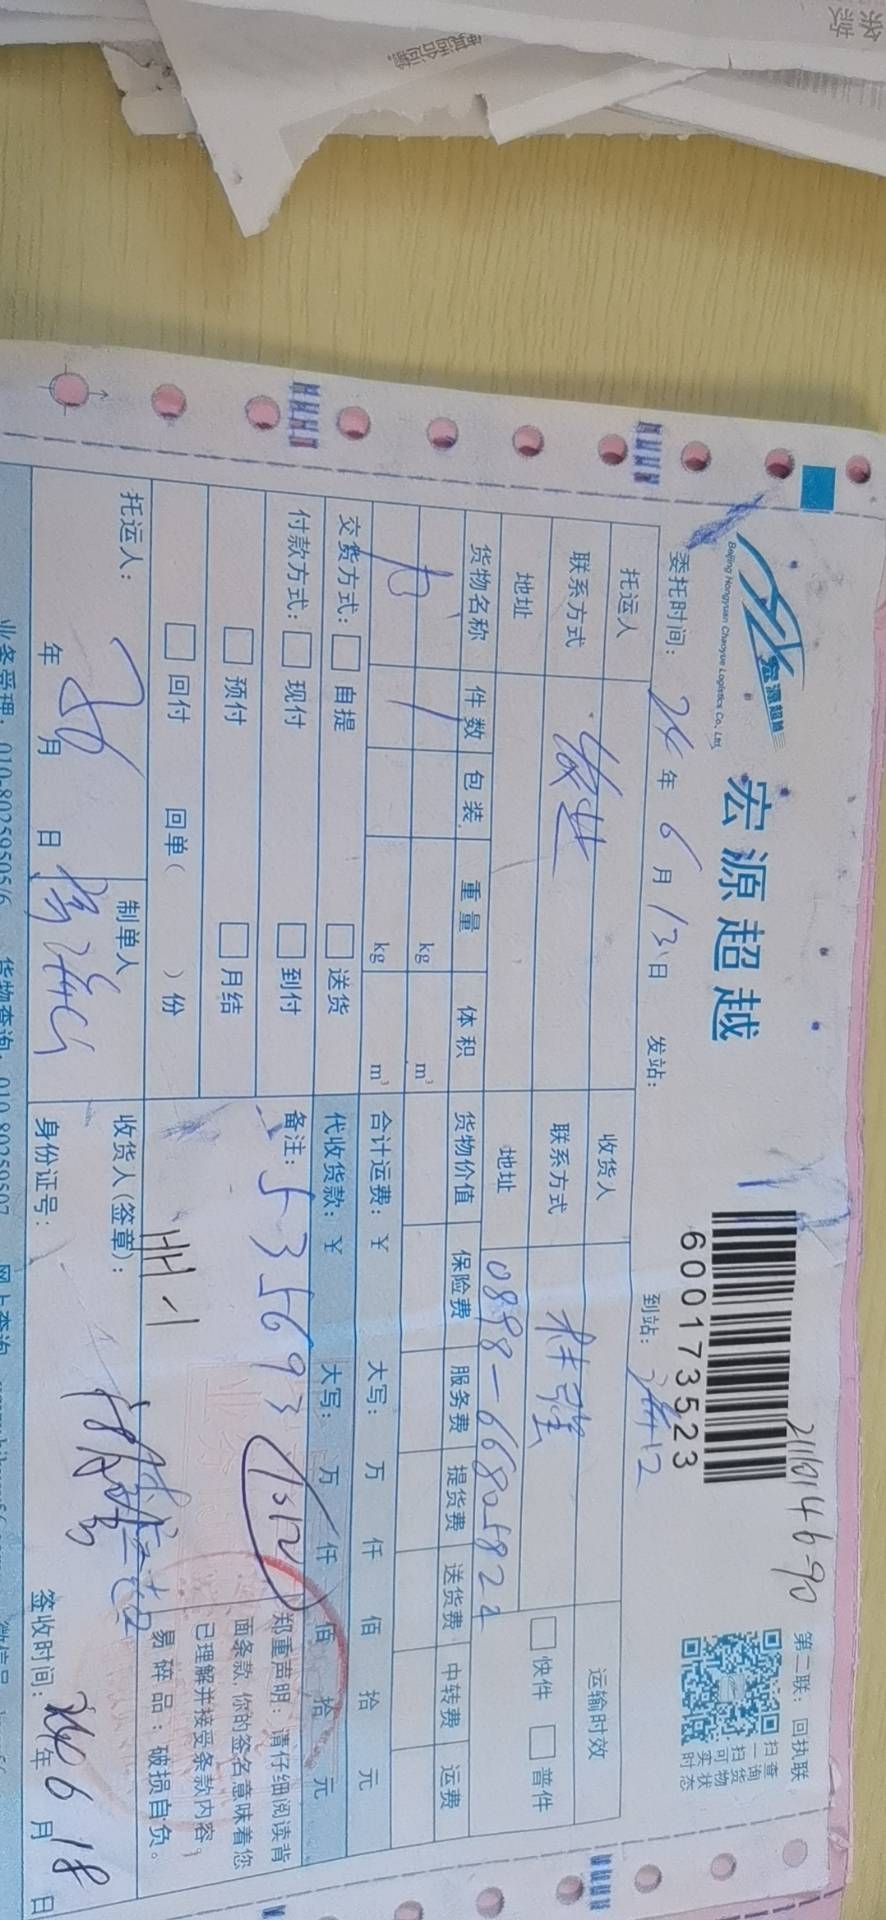 条款
使其适合运输,
宏源超越
Beijing Hongyuan Chaoyue Logistics Co., Ltd.
宏源超越
21161146-90
第二联：回执联
扫一扫可实时
查询货物状态
600173523
委托时间：24年6月13日 发站： 到站：
托运人 收货人 运输时效
联系方式 联系方式 林强 快件 普件
地址 地址 0898-66805822
货物名称 件数 包装 重量 体积 货物价值 保险费 服务费 提货费 送货费 中转费 运费
1 kg m³
kg m³ 合计运费：￥ 大写： 万 仟 佰 拾 元
交货方式： 自提 送货 代收货款：￥ 大写： 万 仟 佰 拾 元
付款方式： 现付 到付 备注：5356693
预付 月结
回付 回单( )份
郑重声明：请仔细阅读背
面条款,你的签名意味着您
已理解并接受条款内容；
易碎品：破损自负。
托运人： 制单人 收货人(签章)：
年 月 日 身份证号： 签收时间：24年6月18日
业务受理：010-80259505/6 货物查询：010-80259507 网上查询